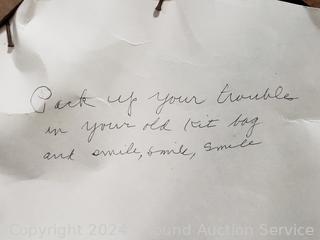 Pack up your trouble
in your old Kit bag
and smile, smile, smile
Copyright 2024 ound Auction Service